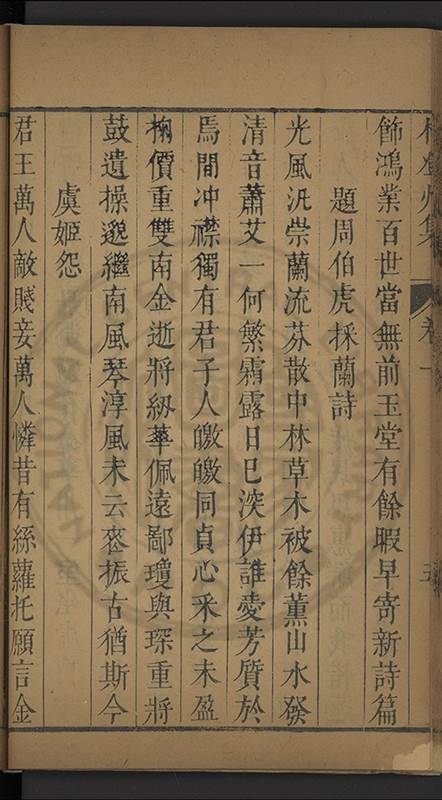 林登州集 卷一 五
飾鴻業百世當無前玉堂有餘暇早寄新詩篇
題周伯虎採蘭詩
光風汎崇蘭流芬散中林草木被餘薰山水發
清音蕭艾一何繁霜露日已深伊誰愛芳質於
焉間冲襟獨有君子人皦皦同貞心采之未盈
掬價重雙南金逝將紉華佩遠鄙瓊與琛重將
鼓遺操邈繼南風琴淳風未云喪振古猶斯今
虞姬怨
君王萬人敵賤妾萬人憐昔有絲蘿托願言金